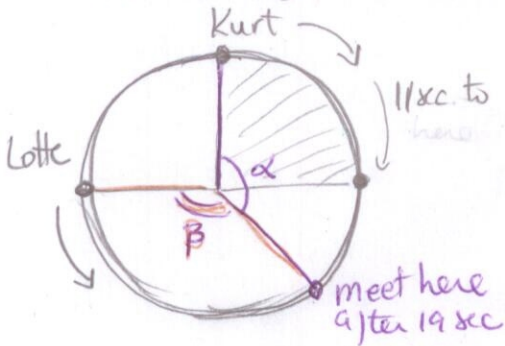 Kurt
11 sec. to
Lotte
α
β
meet here
after 19 sec